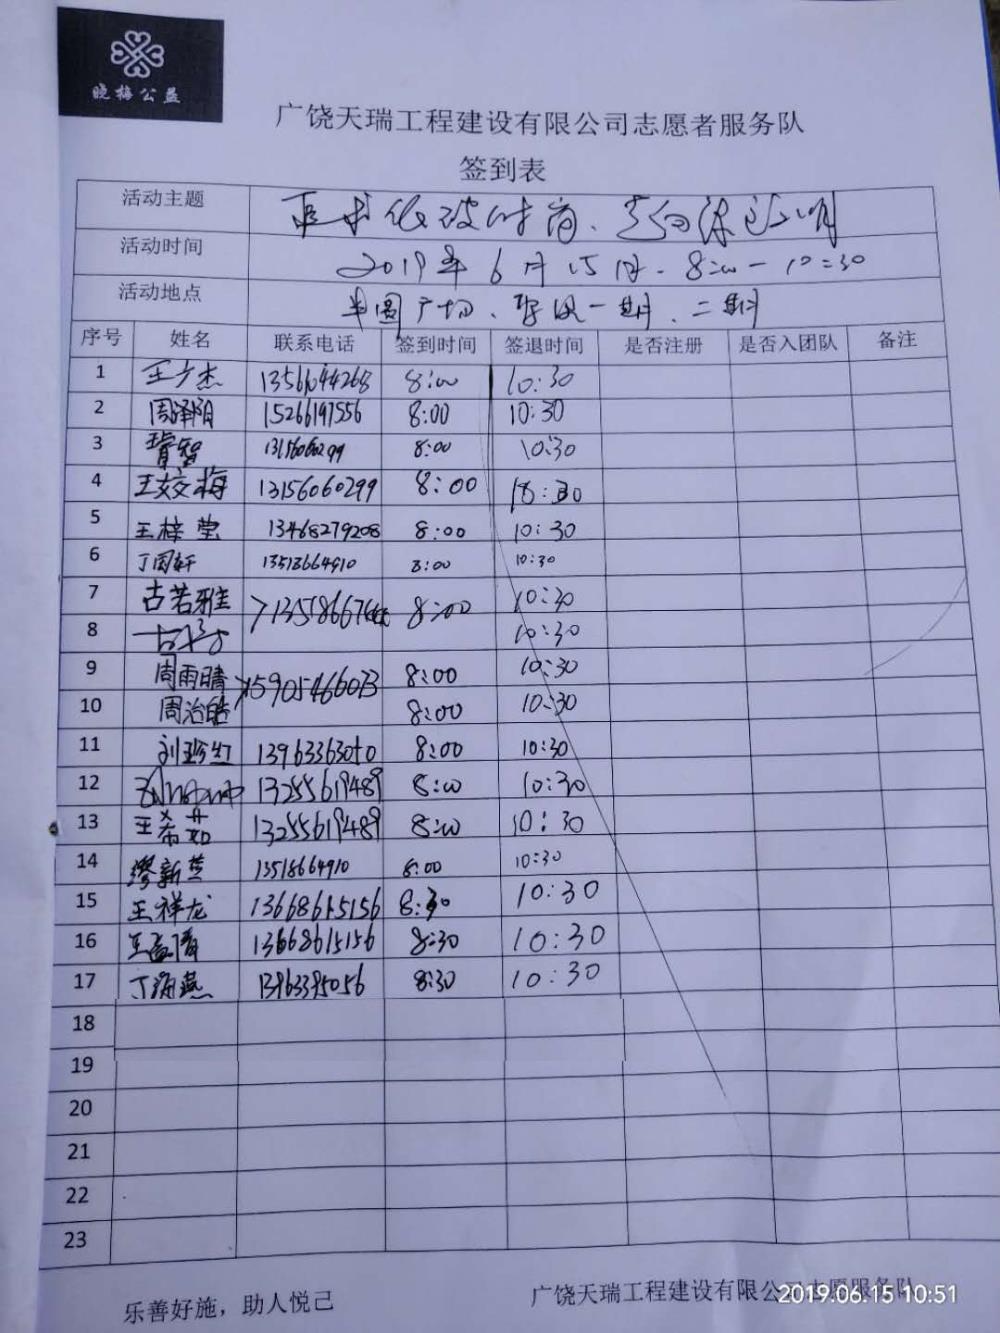 晓梅公益
广饶天瑞工程建设有限公司志愿者服务队
签到表
活动主题 追求低碳时尚、走向绿色文明
活动时间 2019年6月15日. 8:00-10:30
活动地点 半圆广场、一期、二期
序号 姓名 联系电话 签到时间 签退时间 是否注册 是否入团队 备注
1 王广杰 8:00 10:30
2 周泽阳 15266197556 8:00 10:30
3 13156060299 8:00 10:30
4 王姣梅 13156060299 8:00 10:30
5 王梓莹 13468279208 8:00 10:30
6 丁国轩 13518664910 8:00 10:30
7 古若雅 8:00 10:30
8 10:30
9 周雨晴 15905466073 8:00 10:30
10 周治皓 8:00 10:30
11 刘珍红 13963363050 8:00 10:30
12 13255619489 8:00 10:30
13 王希茹 13255619489 8:00 10:30
14 缪新芝 13518664910 8:00 10:30
15 王祥龙 13668615156 8:30 10:30
16 13668615156 8:30 10:30
17 丁海燕 13963395056 8:30 10:30
18
19
20
21
22
23
乐善好施，助人悦己
广饶天瑞工程建设有限公司志愿服务队
2019.06.15 10:51